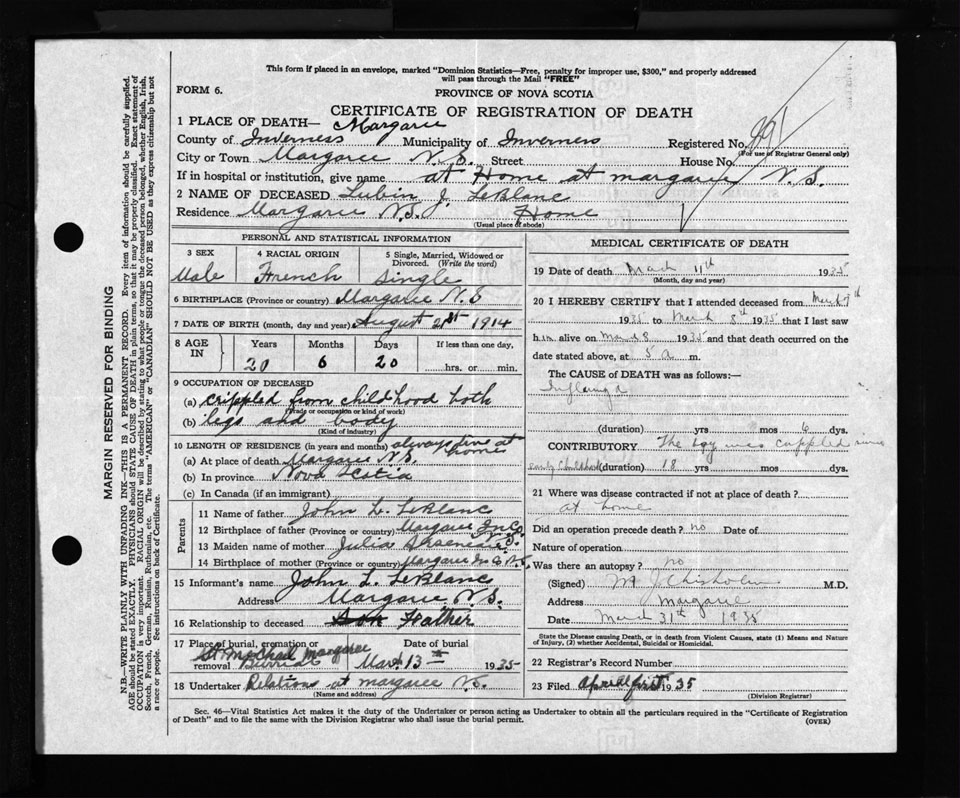 This form if placed in an envelope, marked "Dominion Statistics—Free, penalty for improper use, $300," and properly addressed
will pass through the Mail "FREE"
FORM 6.
PROVINCE OF NOVA SCOTIA
CERTIFICATE OF REGISTRATION OF DEATH
1 PLACE OF DEATH— Margaree
County of Inverness Municipality of Inverness Registered No. 891
(For use of Registrar General only)
City or Town Margaree N.S. Street House No.
If in hospital or institution, give name at Home at margaree N.S.
2 NAME OF DECEASED Lubin J. LeBlanc
Residence Margaree N.S. Home
(Usual place of abode)
PERSONAL AND STATISTICAL INFORMATION
3 SEX 4 RACIAL ORIGIN 5 Single, Married, Widowed or Divorced. (Write the word)
Male French single
6 BIRTHPLACE (Province or country) Margaree N.S
7 DATE OF BIRTH (month, day and year) August 21st 1914
8 AGE IN Years Months Days If less than one day,
20 6 20 hrs. or min.
9 OCCUPATION OF DECEASED
(a) crippled from childhood both
(Trade or occupation or kind of work)
(b) legs and body
(Kind of industry)
10 LENGTH OF RESIDENCE (in years and months) always live at home
(a) At place of death Margaree N.S.
(b) In province Nova Scotia
(c) In Canada (if an immigrant)
Parents
11 Name of father John L. LeBlanc
12 Birthplace of father (Province or country) Margaree
13 Maiden name of mother Julia
14 Birthplace of mother (Province or country) Margaree
15 Informant's name John L. LeBlanc
Address Margaree N.S.
16 Relationship to deceased Son Father
17 Place of burial, cremation or removal St Michael Margaree Burrial
Date of burial Mar. 13th 1935
18 Undertaker Relations at margaree N.S.
(Name and address)
MEDICAL CERTIFICATE OF DEATH
19 Date of death March 11th 1935
(Month, day and year)
20 I HEREBY CERTIFY that I attended deceased from March 7th
1935 to March 8th 1935 that I last saw
him alive on Mar 8 1935 and that death occurred on the
date stated above, at 5 a m.
The CAUSE of DEATH was as follows:—
(duration) yrs mos 6 dys.
CONTRIBUTORY The boy was crippled since
early childhood (duration) 18 yrs mos dys.
21 Where was disease contracted if not at place of death?
at home
Did an operation precede death? no Date of
Nature of operation
Was there an autopsy? no
(Signed) M J Chisholm M.D.
Address Margaree
Date March 31st 1935
State the Disease causing Death, or in death from Violent Causes, state (1) Means and Nature
of Injury, (2) whether Accidental, Suicidal or Homicidal.
22 Registrar's Record Number
23 Filed April first 1935
(Division Registrar)
Sec. 46—Vital Statistics Act makes it the duty of the Undertaker or person acting as Undertaker to obtain all the particulars required in the "Certificate of Registration
of Death" and to file the same with the Division Registrar who shall issue the burial permit.
(OVER)
MARGIN RESERVED FOR BINDING
N.B.—WRITE PLAINLY WITH UNFADING INK—THIS IS A PERMANENT RECORD. Every item of information should be carefully supplied.
AGE should be stated EXACTLY. PHYSICIANS should STATE CAUSE OF DEATH in plain terms, so that it may be properly classified. Exact statement of
OCCUPATION is very important. RACIAL ORIGIN will be described by stating to what people or tongue the deceased person belonged, whether English, Irish,
Scotch, French, German, Russian, Ruthenian, etc. The terms "AMERICAN" or "CANADIAN" SHOULD NOT BE USED as they express citizenship but not
a race or people. See instructions on back of Certificate.